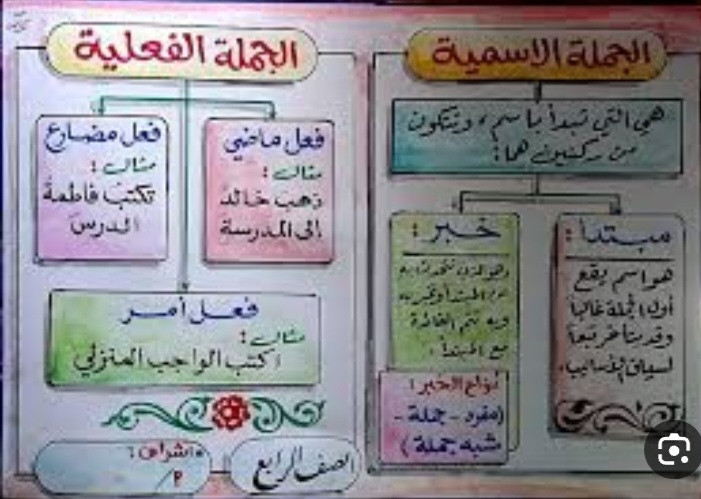 الجملة الاسمية
هي التي تبدأ باسم، وتتكون
من ركنين هما:
مبتدأ:
هو اسم يقع
أول الجملة غالباً
وقد يتأخر تبعاً
لسياق الأساليب.
خبر:
به
المبتدأ
وبه تتم الفائدة
مع المبتدأ.
أنواع الخبر:
(مفرد - جملة -
شبه جملة)
الجملة الفعلية
فعل ماضي
مثال:
ذهب خالد
إلى المدرسة
فعل مضارع
مثال:
تكتب فاطمة
الدرس
فعل أمر
مثال:
اكتب الواجب المنزلي
الصف الرابع
إشراف:
م/